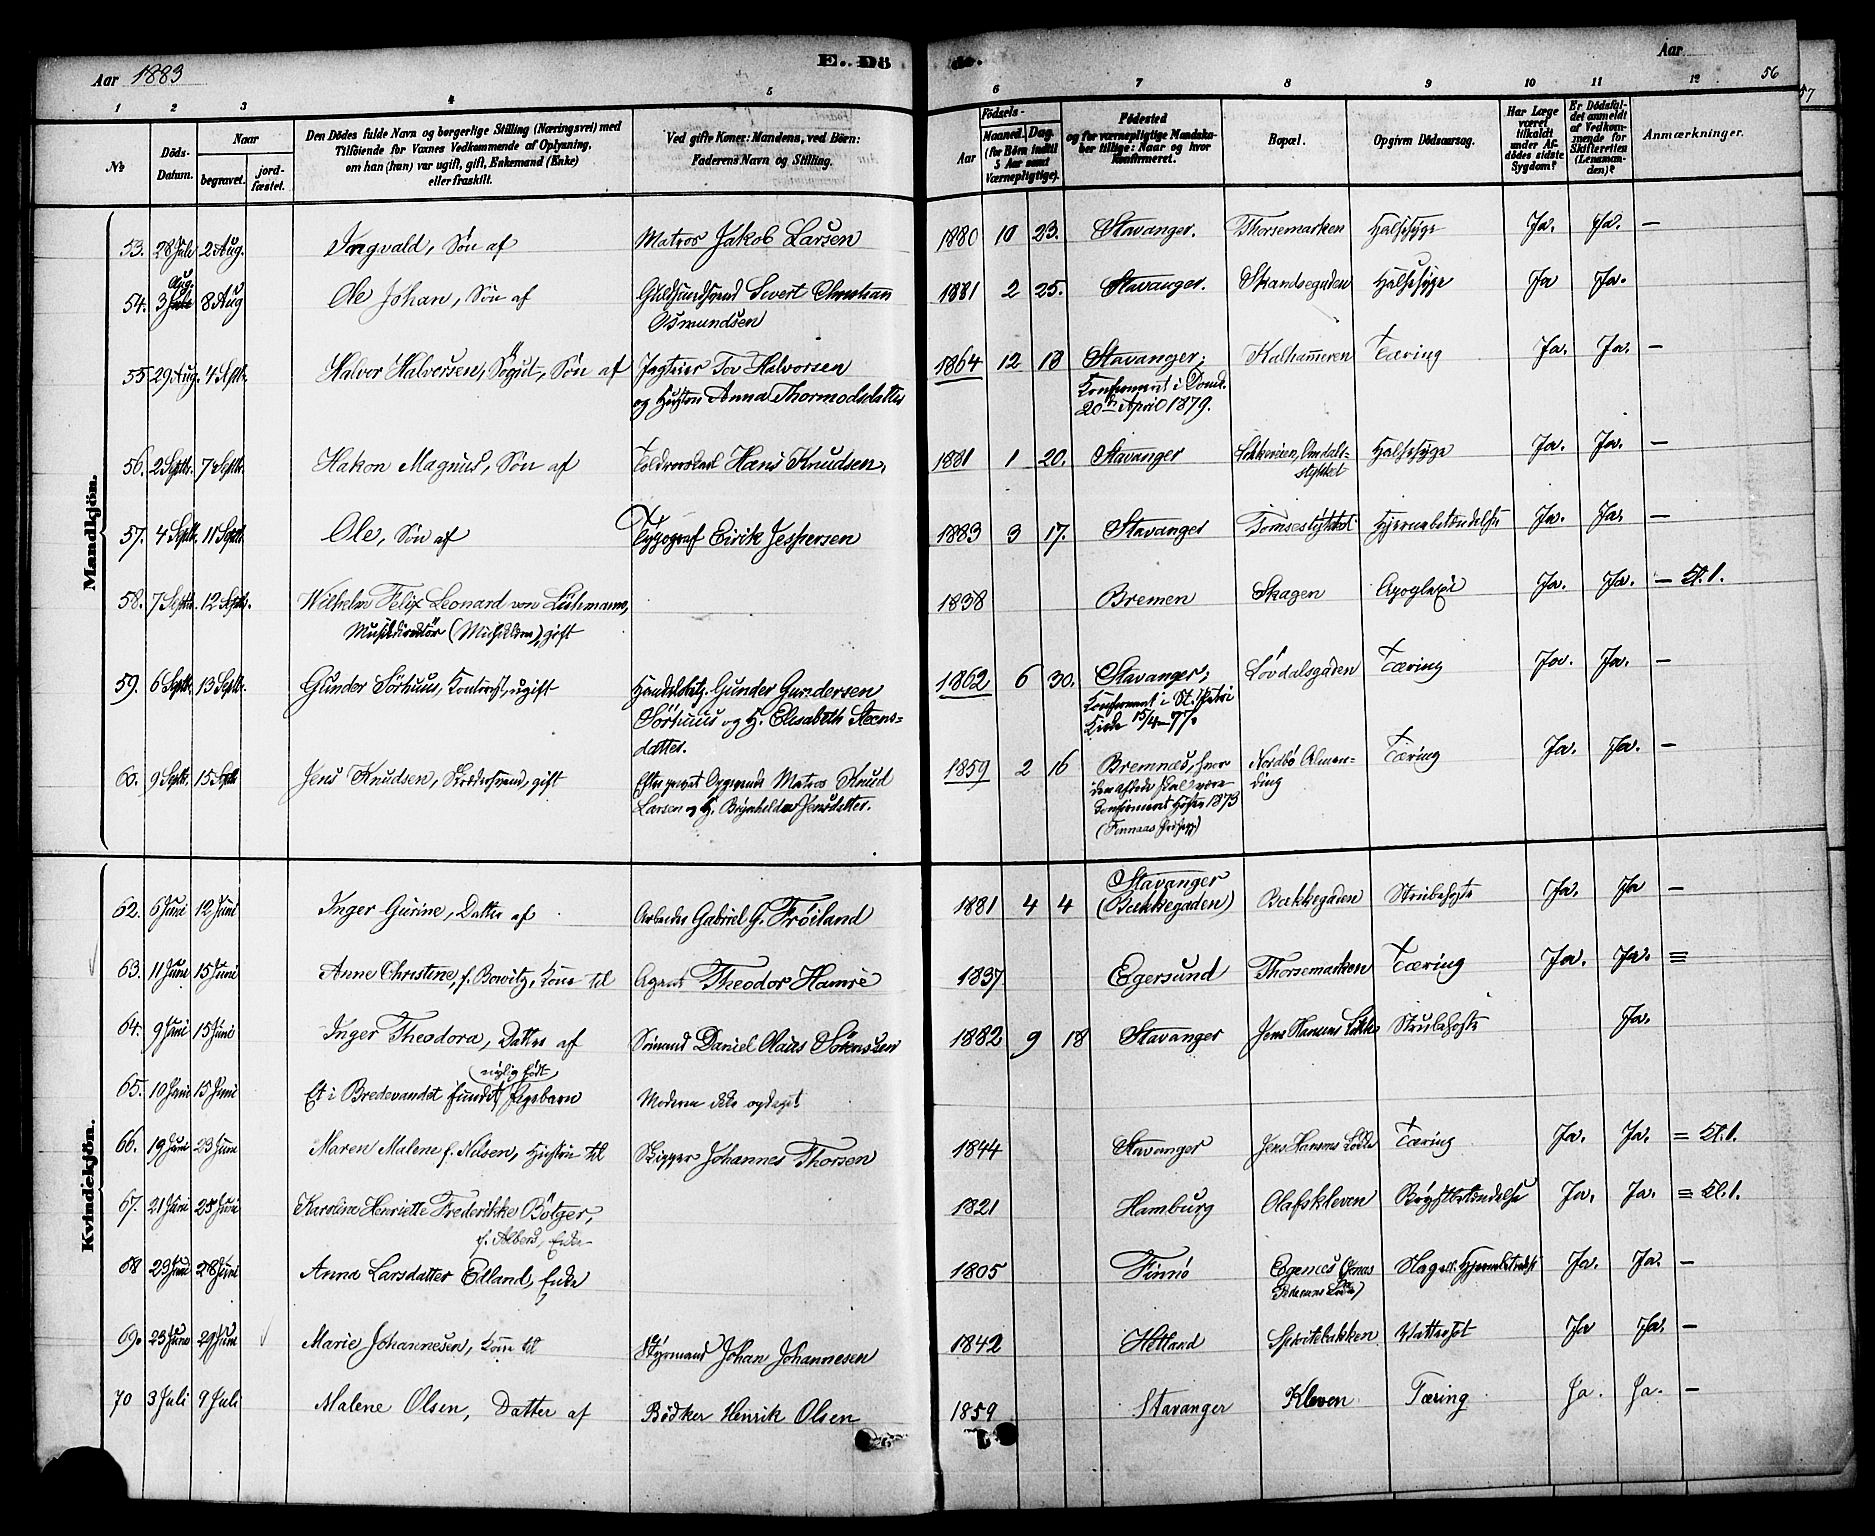 Aar 1883
E. Dö
de.
Aar
56
57
1 2 3 4 5 6 7 8 9 10 11 12
No
Döds-Datum.
Naar
begravet.
jord-fæstet.
Den Dödes fulde Navn og borgerlige Stilling (Næringsvei) med
Tilföiende for Voxnes Vedkommende af Oplysning,
om han (hun) var ugift, gift, Enkemand (Enke)
eller fraskilt.
Ved gifte Koner: Mandens, ved Börn:
Faderens Navn og Stilling.
Födsels-
Aar
Maaned. Dag.
(for Börn indtil
5 Aar samt
Værnepligtige).
Födested
og for værnepligtige Mandska-
ber tillige: Naar og hvor
Konfirmeret.
Bopæl.
Opgiven Dödsaarsag.
Har Læge
været
tilkaldt
under Af-
dödes sidste
Sygdom?
Er Dödsfal-
det anmeldt
af Vedkom-
mende for
Skifteretten
(Lensman-
den)?
Anmærkninger.
Mandkjön.
53. 28 Juli 2 Aug. Ingvald, Søn af Matros Jakob Larsen 1880 10 23. Stavanger. Thorsemarken Halssyge Ja. Ja. —
54. 3 Aug. 8 Aug Ole Johan, Søn af Guldsmedsvend Sivert Christian 1881 2 25. Stavanger. Skandsegaden Halssyge Ja Ja. —
Osmundsen
55 29 Aug. 4 Septbr. Halvor Halvorsen, Søgut, Søn af Jagteier Tov Halvorsen 1864 12 13 Stavanger; Kalhammeren Tæring Ja. Ja. —
og Hustru Anna Thormodsdatter Konfirmeret i Domk.
20de April 1879.
56. 2 Septbr. 7 Septbr. Hakon Magnus, Søn af Hans Knudsen, 1881 1 20. Stavanger Halssyge Ja. Ja. —
57. 4 Septbr. 11 Septbr. Ole, Søn af Typograf Eirik Jespersen 1883 3 17. Stavanger Hjernebetændelse Ja. Ja. —
58. 7 Septbr. 12 Septbr. Wilhelm Felix Leonard von 1838 Bremen Skagen Apoplexi Ja. Ja. — Kl. 1.
Musikdirektør gift
59. 6 Septbr. 13 Septbr. Gunder Sörhuus, Kontorist, ugift Gunder Gundersen 1862 6 30. Stavanger; Lövdalsgaden Tæring Ja. Ja. —
Sörhuus og H. Elisabeth Steens- Konfirmeret i St. Petri
datter. Kirke 15/4–77.
60. 9 Septbr. 15 Septbr. Jens Knudsen, Skrædersvend, gift Efter Opgivende Matros Knud 1859 2 16 Bremnæs, hvor Nordbø Almen- Tæring Ja. Ja. —
Larsen og H. Brynhilda Jensdatter. ding
den afdøde skal være
konfirmeret Høsten 1873
(Finnaas Præstegj.)
Kvindekjön.
62. 6 Juni 12 Juni Inger Gurine, Datter af Arbeider Gabriel G. Fröiland 1881 4 4 Stavanger Bakkegaden Strubehoste Ja. Ja —
(Bakkegaden)
63. 11 Juni 15 Juni Anne Christine, f. Bowitz, Kone til Agent Theodor Hamre 1837 Egersund Thorsemarken Tæring Ja. Ja.
64. 9 Juni 15 Juni Inger Theodora, Datter af Sömand Daniel Olaus Sörensen 1882 9 18 Stavanger Jens Hansens Løkke Strubehoste Ja.
65. 10 Juni 15 Juni Et i Bredevandet fundet nylig født Pigebarn Moderen ikke opdaget
66. 19 Juni 23 Juni Maren Malene f. Nilsen, Hustru til Skipper Johannes Thorsen 1844 Stavanger Jens Hansens Løkke Tæring Ja. Ja. = Kl. 1.
67. 21 Juni 25 Juni Karolina Henriette Frederikke Bötger, 1821 Hamburg Olafskleven Brystbetændelse Ja. Ja. = Kl. 1.
f. Albers, Enke
68 23 Juni 28 Juni Anna Larsdatter Edland, Enke 1805 Finnö Egenes Ja. Ja. —
69. 23 Juni 29 Juni Marie Johannesen, Kone til Styrmand Johan Johannesen 1842 Hetland Spilderbakken Vattersot Ja Ja. —
70 3 Juli 9 Juli Malene Olsen, Datter af Bødker Henrik Olsen 1859 Stavanger Kleven Tæring Ja. Ja. —